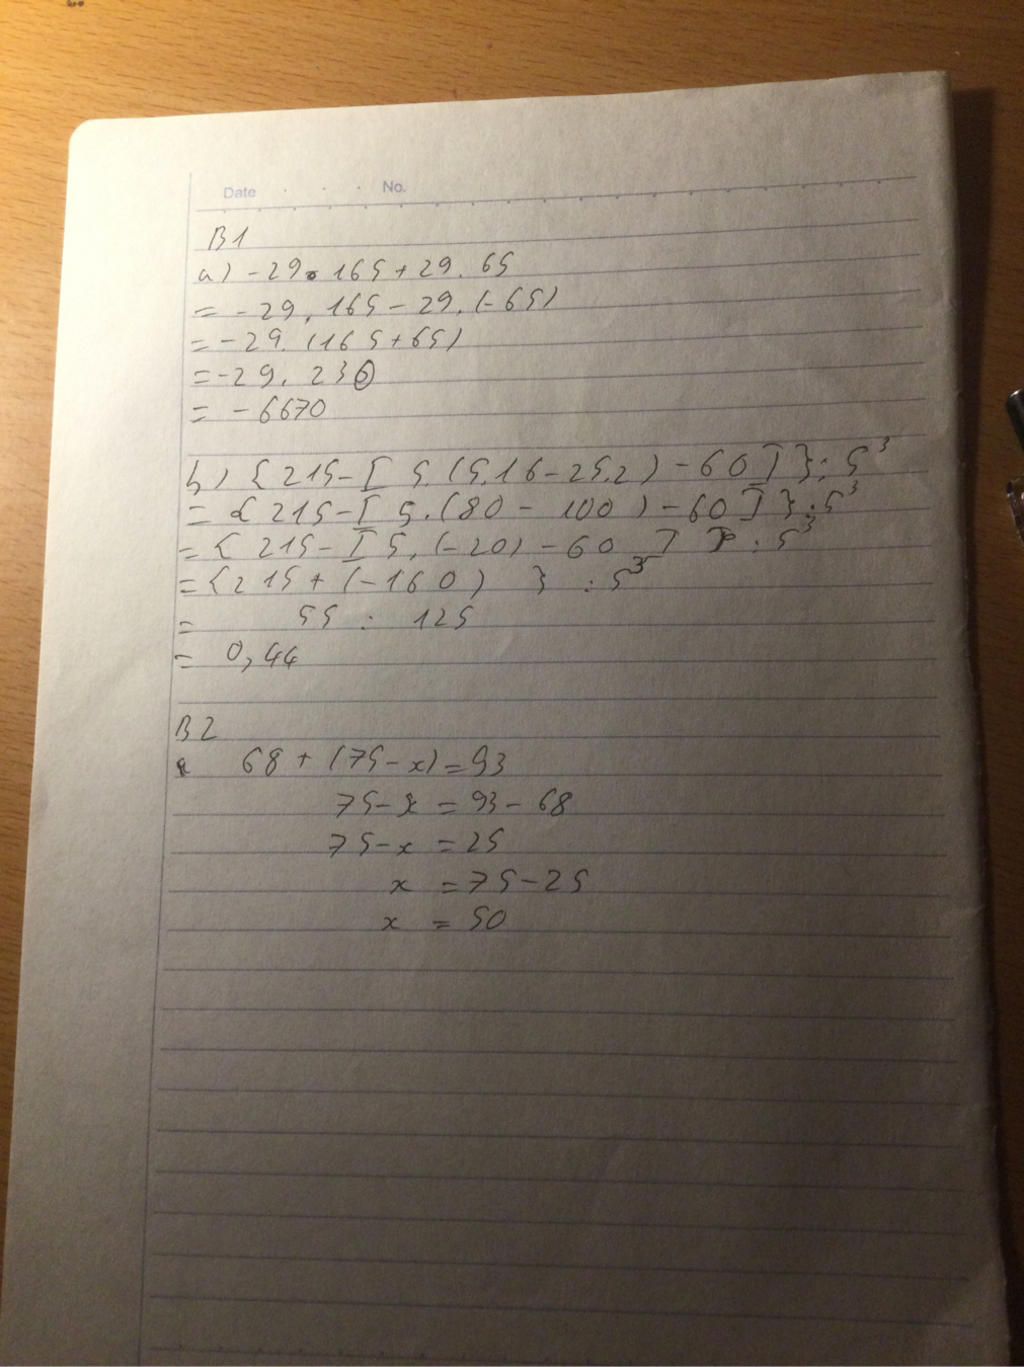 Date . . . No.
B1
a) -29.165+29.65
= -29.165-29.(-65)
=-29.(165+65)
=-29.230
= -6670
b) {215-[5.(5.16-25.2)-60]}:5³
= {215-[5.(80-100)-60]}:5³
={215-[5.(-20)-60]}:5³
={215+(-160)}:5³
= 55 : 125
= 0,44
B2
68+(75-x)=93
75-x = 93-68
75-x = 25
x = 75-25
x = 50